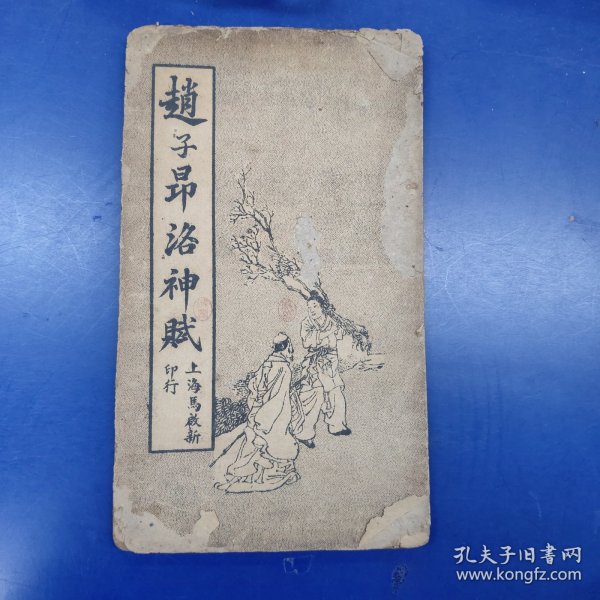 趙子昂洛神賦
上海馬啟新
印行
孔夫子旧书网
www.kongfz.com